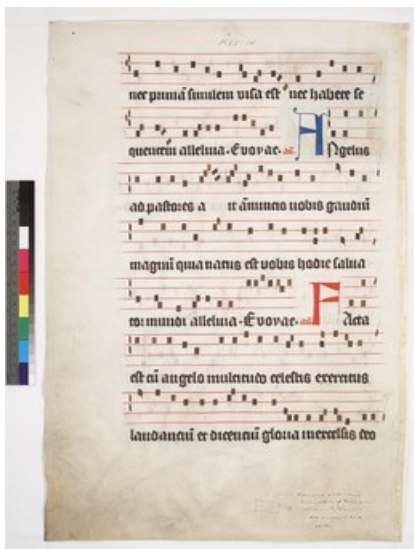 nec primā similem visa est nec habere se
quentem alleluia. Evovae. añ Angelus
ad pastores a it annucio vobis gaudiū
magnū quia natus est vobis hodie salva
tor mundi alleluia. Evovae. añ Facta
est cū angelo multitudo celestis exercitus
laudanciū et dicenciū gloria in excelsis deo